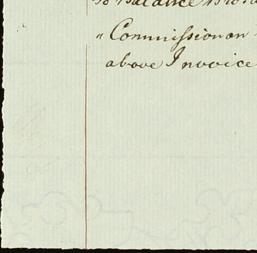 To Balance
" Commission on
above Invoice